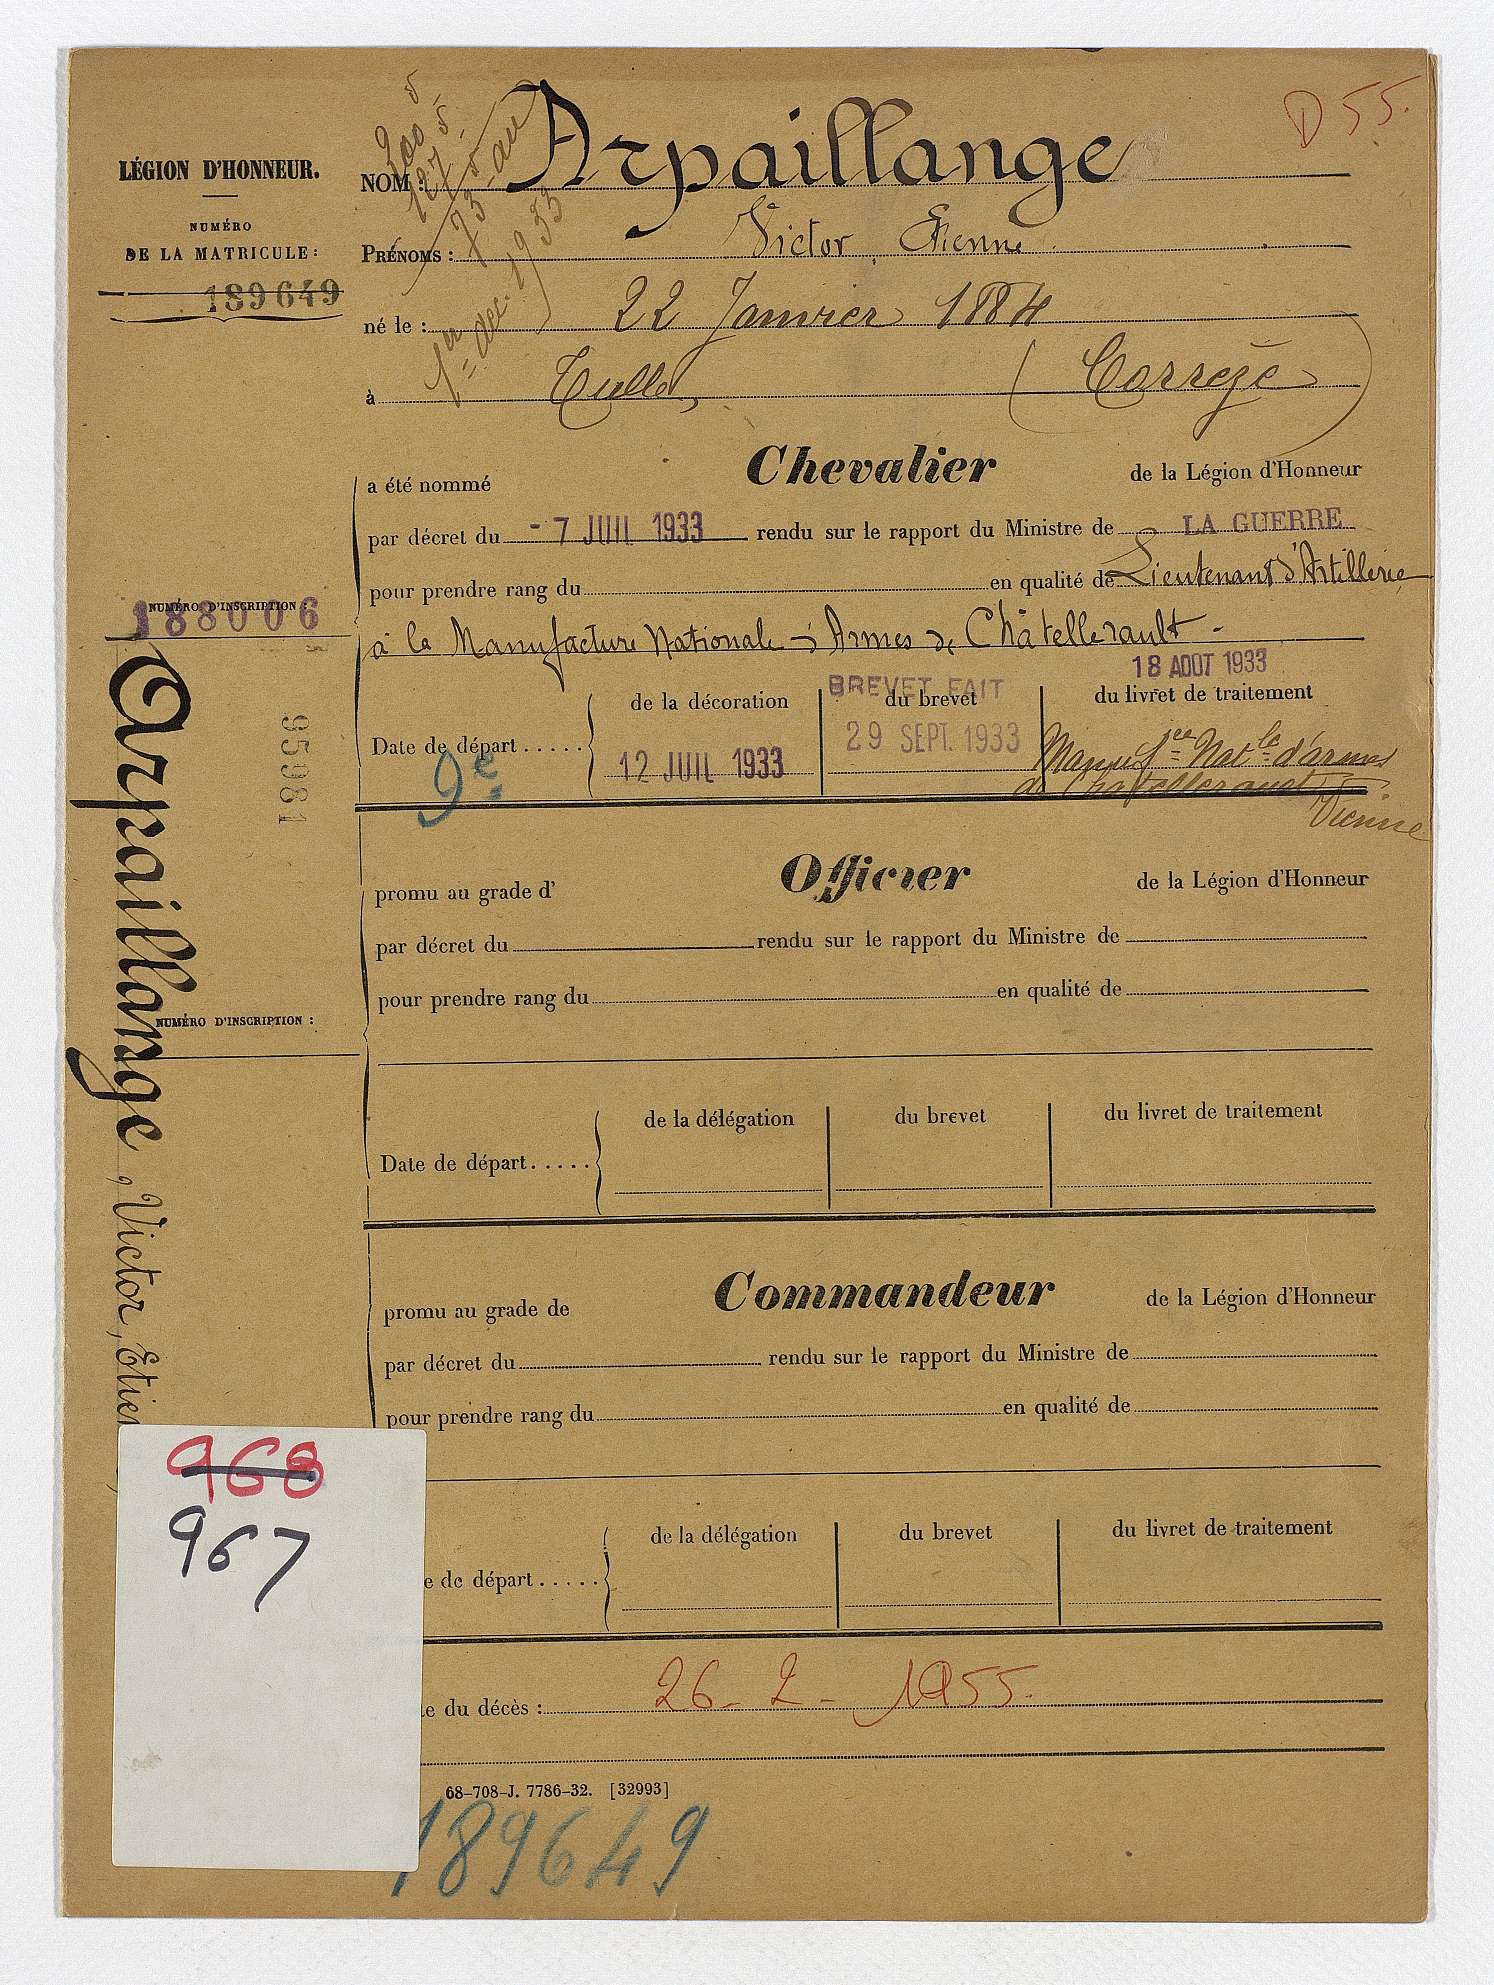 D 55.
LÉGION D'HONNEUR.
NUMÉRO
DE LA MATRICULE :
189649
200 5
127 5
73 5 au
1er dec. 1933
NOM : Arpaillange
PRÉNOMS : Victor, Etienne
né le : 22 Janvier 1884
à Tulle, (Corrèze)
a été nommé Chevalier de la Légion d'Honneur
par décret du - 7 JUIL 1933 rendu sur le rapport du Ministre de LA GUERRE
pour prendre rang du en qualité de Lieutenant d'Artillerie
à la Manufacture Nationale d'Armes de Châtellerault -
NUMÉRO D'INSCRIPTION :
188006
95981
Date de départ ..... de la décoration du brevet du livret de traitement
12 JUIL 1933
BREVET FAIT
29 SEPT. 1933
18 AOUT 1933
Manufre Natle d'armes
de Chatellerault
Vienne
9e
promu au grade d' Officier de la Légion d'Honneur
par décret du rendu sur le rapport du Ministre de
pour prendre rang du en qualité de
NUMÉRO D'INSCRIPTION :
Date de départ ..... de la délégation du brevet du livret de traitement
promu au grade de Commandeur de la Légion d'Honneur
par décret du rendu sur le rapport du Ministre de
pour prendre rang du en qualité de
e de départ ..... de la délégation du brevet du livret de traitement
te du décès : 26 - 2 - 1955.
68-708-J. 7786-32. [32993]
189649
Arpaillange, Victor, Etien
968
967